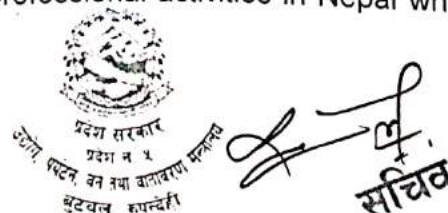 professional activities in Nepal wh
प्रदेश सरकार
प्रदेश नं ५
उद्योग, पर्यटन, वन तथा वातावरण मन्त्रालय
बुटवल रुपन्देही
सचिव